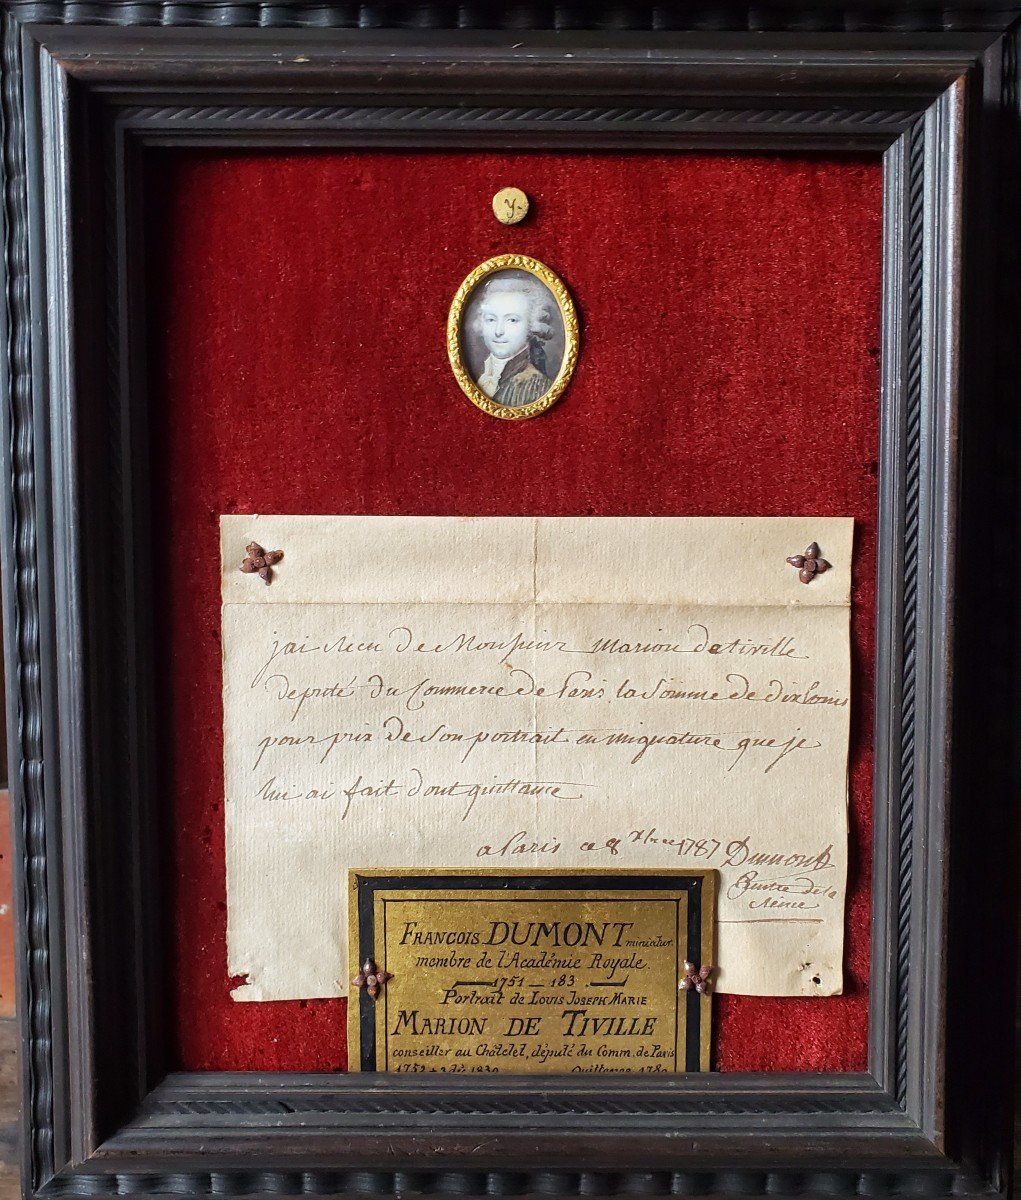 y.
jai Recu de Monsieur Marion de tiville
deputé du Commerce de Paris la Somme de dix Louis
pour prix de Son portrait en mignature que je
lui ai fait dont quittance
a Paris ce 8 1787 Dumont
Peintre de la
Reine
FRANCOIS DUMONT miniatur.
membre de l'Académie Royale.
1751 — 183 .
Portrait de LOUIS JOSEPH MARIE
MARION DE TIVILLE
conseiller au Châtelet, député du Comm. de Paris
1752 1830 Quittance 178